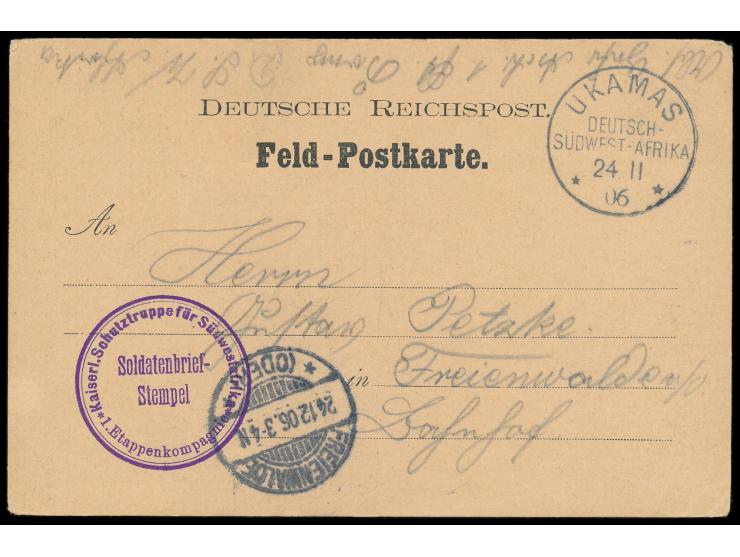 Abs.
1
DEUTSCHE REICHSPOST.
Feld-Postkarte.
UKAMAS
DEUTSCH-
SÜDWEST-AFRIKA
24 11
* 06 *
An
Herrn
Gustav Petzke
in Freienwalde a/O
Bahnhof
Kaiserl. Schutztruppe für Südwestafrika
Soldatenbrief-
Stempel
*1. Etappenkompagnie*
FREIENWALDE
24.12.06.3-4N.
* (ODER)